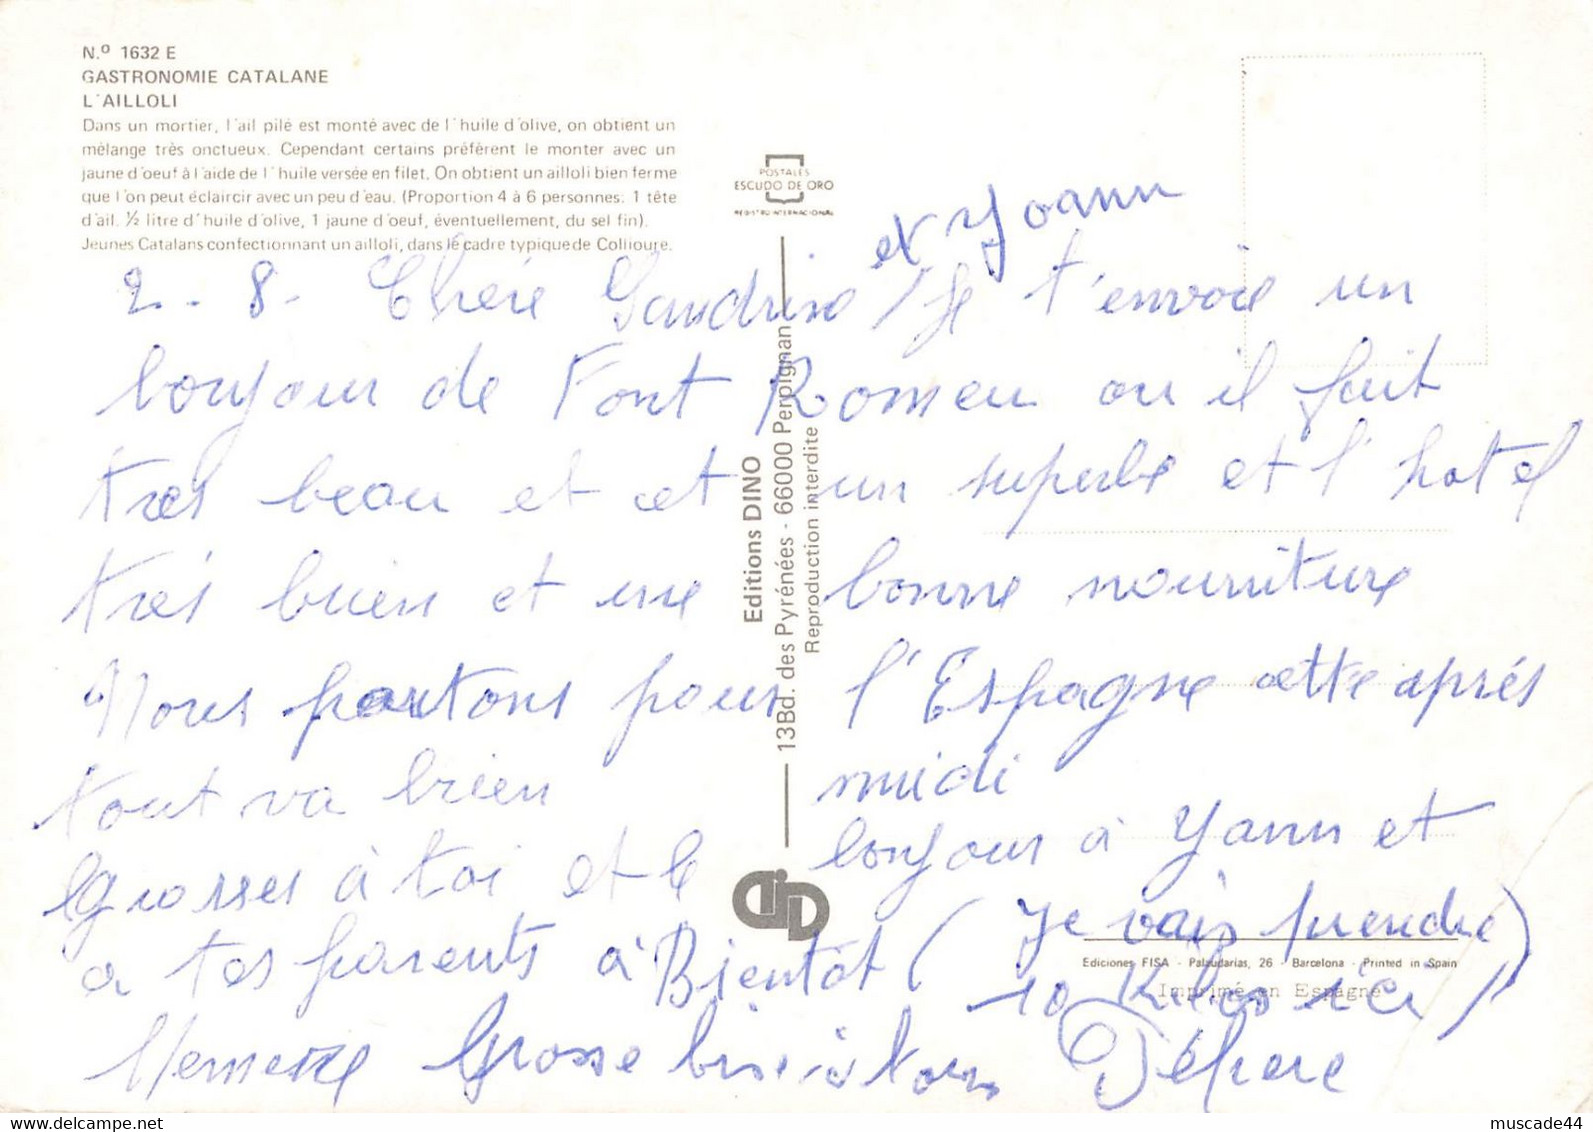 N.º 1632 E
GASTRONOMIE CATALANE
L'AILLOLI
Dans un mortier, l'ail pilé est monté avec de l'huile d'olive, on obtient un
mélange très onctueux. Cependant certains préfèrent le monter avec un
jaune d'oeuf à l'aide de l'huile versée en filet. On obtient un ailloli bien ferme
que l'on peut éclaircir avec un peu d'eau. (Proportion 4 à 6 personnes: 1 tête
d'ail. ½ litre d'huile d'olive, 1 jaune d'oeuf, éventuellement, du sel fin).
Jeunes Catalans confectionnant un ailloli, dans le cadre typique de Collioure.
POSTALES
ESCUDO DE ORO
REGISTRO INTERNACIONAL
et Yoann
2-8- Chère Sandrine Je t'envoie un
bonjour de Font Romeu ou il fait
tres beau et cet un superbe et l'hotel
trés bien et une bonne nourriture
Nous partons pour l'Espagne cette aprés
midi
tout va bien
Grosses à toi et le bonjour à Yann et
a tes parents à Bientôt (je vais prendre
10 Kilos ici)
Grosse bise à tous
Editions DINO
13Bd. des Pyrénées - 66000 Perpignan
Reproduction interdite
Ediciones FISA - Palaudarias, 26 - Barcelona - Printed in Spain
Imprimé en Espagne
muscade44
delcampe.net